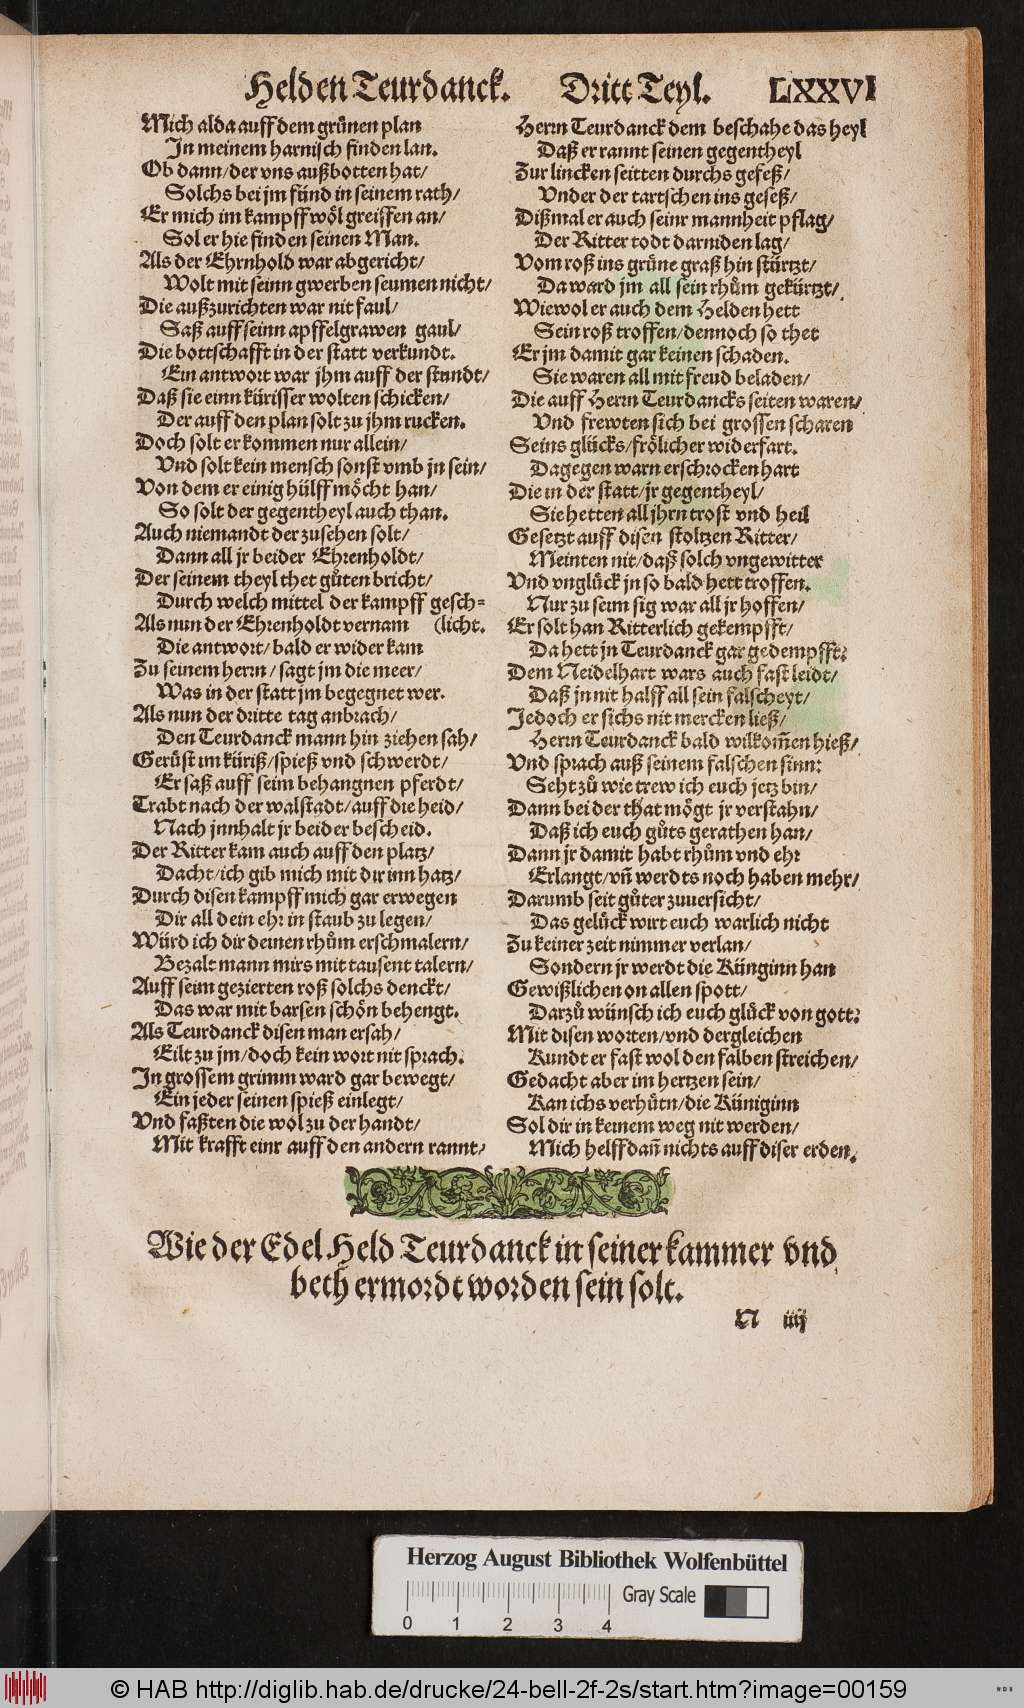 Helden Teurdanck. Dritt Teyl. LXXVI
Mich alda auff dem grünen plan
In meinem harnisch finden lan.
Ob dann/der vns außbotten hat/
Solchs bei jm fünd in seinem rath/
Er mich im kampff wöl greiffen an/
Sol er hie finden seinen Man.
Als der Ehrnhold war abgericht/
Wolt mit seinn gwerben seumen nicht/
Die außzurichten war nit faul/
Saß auff seinn apffelgrawen gaul/
Die bottschafft in der statt verkundt.
Ein antwort war jhm auff der stundt/
Daß sie einn kürisser wolten schicken/
Der auff den plan solt zu jhm rucken.
Doch solt er kommen nur allein/
Vnd solt kein mensch sonst vmb jn sein/
Von dem er einig hülff möcht han/
So solt der gegentheyl auch than.
Auch niemandt der zusehen solt/
Dann all jr beider Ehrenholdt/
Der seinem theyl thet gůten bricht/
Durch welch mittel der kampff gesch=
Als nun der Ehrenholdt vernam (licht.
Die antwort/bald er wider kam
Zu seinem herrn/sagt jm die meer/
Was in der statt jm begegnet wer.
Als nun der dritte tag anbrach/
Den Teurdanck mann hin ziehen sah/
Gerüst im küriß/spieß vnd schwerdt/
Er saß auff seim behangnen pferdt/
Trabt nach der walstadt/auff die heid/
Nach jnnhalt jr beider bescheid.
Der Ritter kam auch auff den platz/
Dacht/ich gib mich mit dir inn hatz/
Durch disen kampff mich gar erwegen
Dir all dein ehr in staub zu legen/
Würd ich dir deinen rhům erschmalern/
Bezalt mann mirs mit tausent talern/
Auff seim gezierten roß solchs denckt/
Das war mit barsen schön behengt.
Als Teurdanck disen man ersah/
Eilt zu jm/doch kein wort nit sprach.
In grossem grimm ward gar bewegt/
Ein jeder seinen spieß einlegt/
Vnd faßten die wol zu der handt/
Mit krafft einr auff den andern rannt/
Herrn Teurdanck dem beschahe das heyl
Daß er rannt seinen gegentheyl
Zur lincken seitten durchs geseß/
Vnder der tartschen ins geseß/
Dißmal er auch seinr mannheit pflag/
Der Ritter todt darniden lag/
Vom roß ins grüne graß hin stürtzt/
Da ward jm all sein rhům gekürtzt/
Wiewol er auch dem Helden hett
Sein roß troffen/dennoch so thet
Er jm damit gar keinen schaden.
Sie waren all mit freud beladen/
Die auff Herrn Teurdancks seiten waren/
Vnd frewten sich bei grossen scharen
Seins glücks/frölicher widerfart.
Dagegen warn erschrocken hart
Die in der statt/jr gegentheyl/
Sie hetten all jhrn trost vnd heil
Gesetzt auff disen stoltzen Ritter/
Meinten nit/daß solch vngewitter
Vnd vnglück jn so bald hett troffen.
Nur zu seim sig war all jr hoffen/
Er solt han Ritterlich gekempfft/
Da hett jn Teurdanck gar gedempfft:
Dem Neidelhart wars auch fast leidt/
Daß jn nit halff all sein falscheyt/
Jedoch er sichs nit mercken ließ/
Herrn Teurdanck bald wilkom̃en hieß/
Vnd sprach auß seinem falschen sinn:
Seht zů wie trew ich euch jetz bin/
Dann bei der that mögt jr verstahn/
Daß ich euch gůts gerathen han/
Dann jr damit habt rhům vnd ehr
Erlangt/vñ werdts noch haben mehr/
Darumb seit gůter zuuersicht/
Das gelück wirt euch warlich nicht
Zu keiner zeit nimmer verlan/
Sondern jr werdt die Künginn han
Gewißlichen on allen spott/
Darzů wünsch ich euch glück von gott:
Mit disen worten/vnd dergleichen
Kundt er fast wol den falben streichen/
Gedacht aber im hertzen sein/
Kan ichs verhütn/die Küniginn
Sol dir in keinem weg nit werden/
Mich helff dañ nichts auff diser erden.
Wie der Edel Held Teurdanck in seiner kammer vnd
beth ermordt worden sein solt.
N iiij
Herzog August Bibliothek Wolfenbüttel
Gray Scale
0 1 2 3 4
© HAB http://diglib.hab.de/drucke/24-bell-2f-2s/start.htm?image=00159